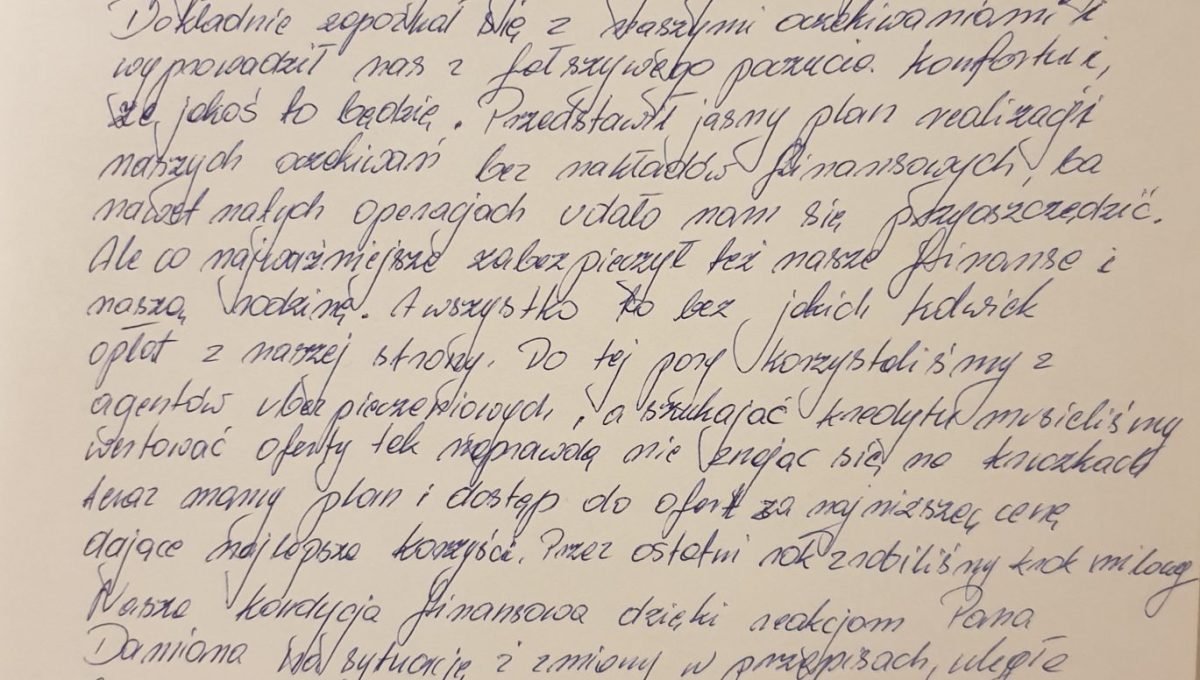 Dokładnie zapoznał się z naszymi oczekiwaniami i
wyprowadził nas z fałszywego poczucia komfortu i,
że jakoś to będzie. Przedstawił jasny plan realizacji
naszych oczekiwań bez nakładów finansowych, ba
nawet na tych operacjach udało nam się przyoszczędzić.
Ale co najważniejsze zabezpieczył też nasze finanse i
naszą rodzinę. A wszystko to bez jakich kolwiek
opłat z naszej strony. Do tej pory korzystaliśmy z
agentów ubezpieczeniowych, a szukając kredytu musieliśmy
wertować oferty tak naprawdę nie znając się na kruczkach
teraz mamy plan i dostęp do ofert za najniższą cenę
dające najlepsze korzyści. Przez ostatni rok zrobiliśmy krok milowy
Nasza kondycja finansowa dzięki reakcjom Pana
Damiana na sytuację i zmiany w przepisach, uległa